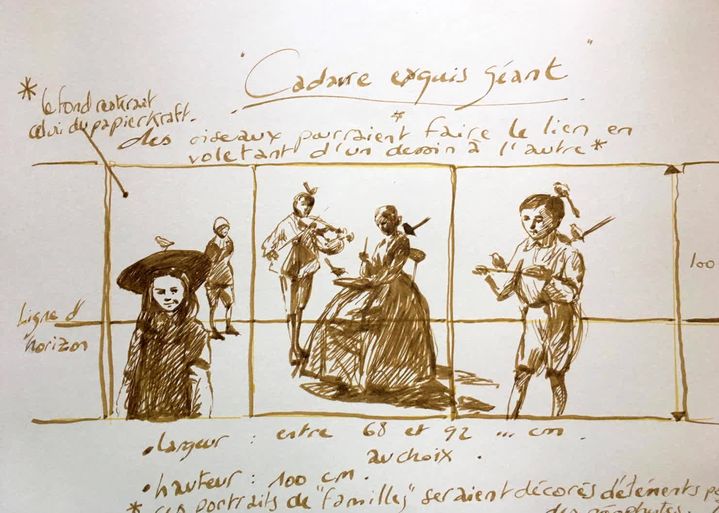 "Cadavre exquis géant"
* le fond restant
celui du papier kraft.
* des oiseaux pourraient faire le lien en
voletant d'un dessin à l'autre *
100
Ligne d'
horizon
• largeur : entre 68 et 92 ... cm.
au choix.
• hauteur : 100 cm.
* ces portraits de "familles" seraient décorés d'éléments
des